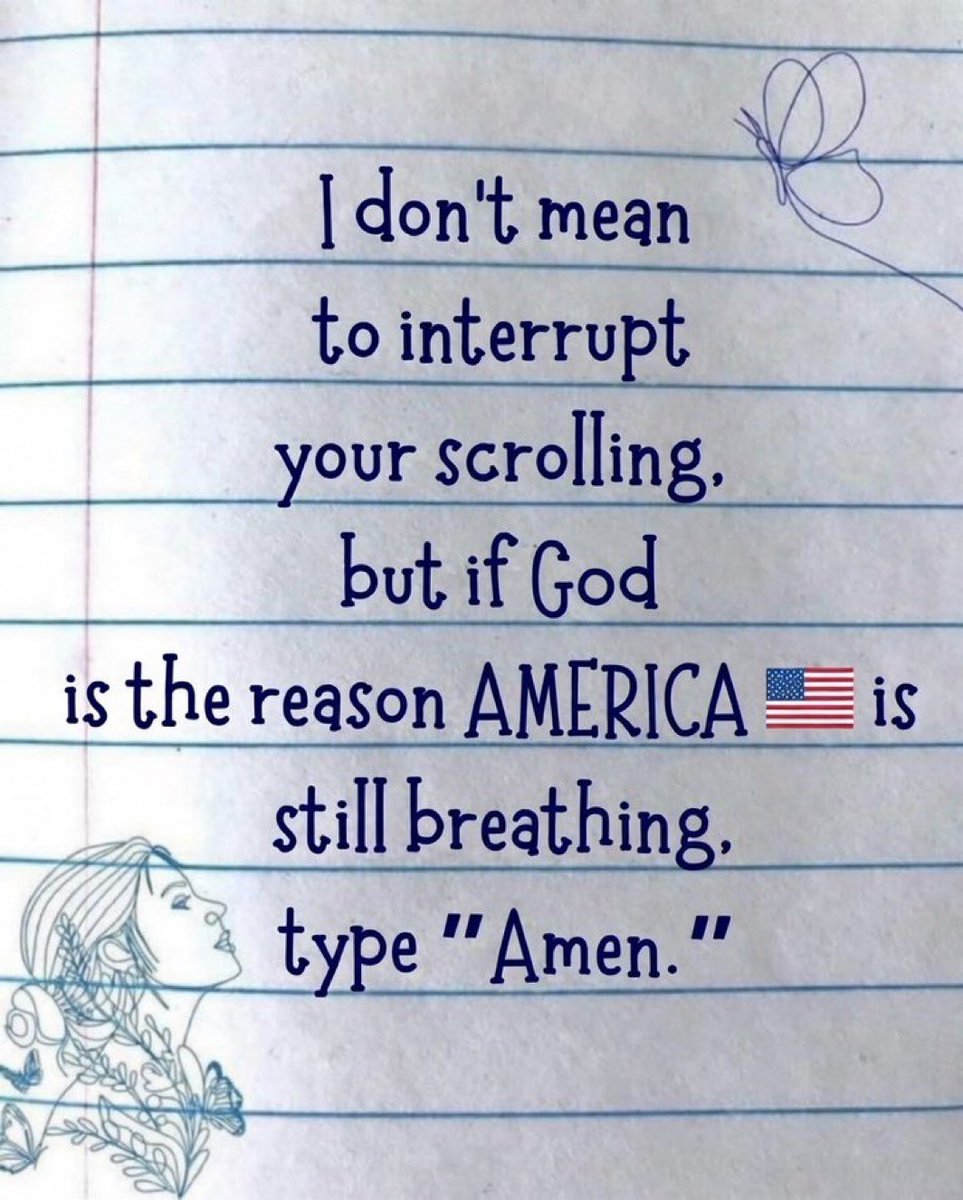 I don't mean
to interrupt
your scrolling,
but if God
is the reason AMERICA 🇺🇸 is
still breathing,
type "Amen."